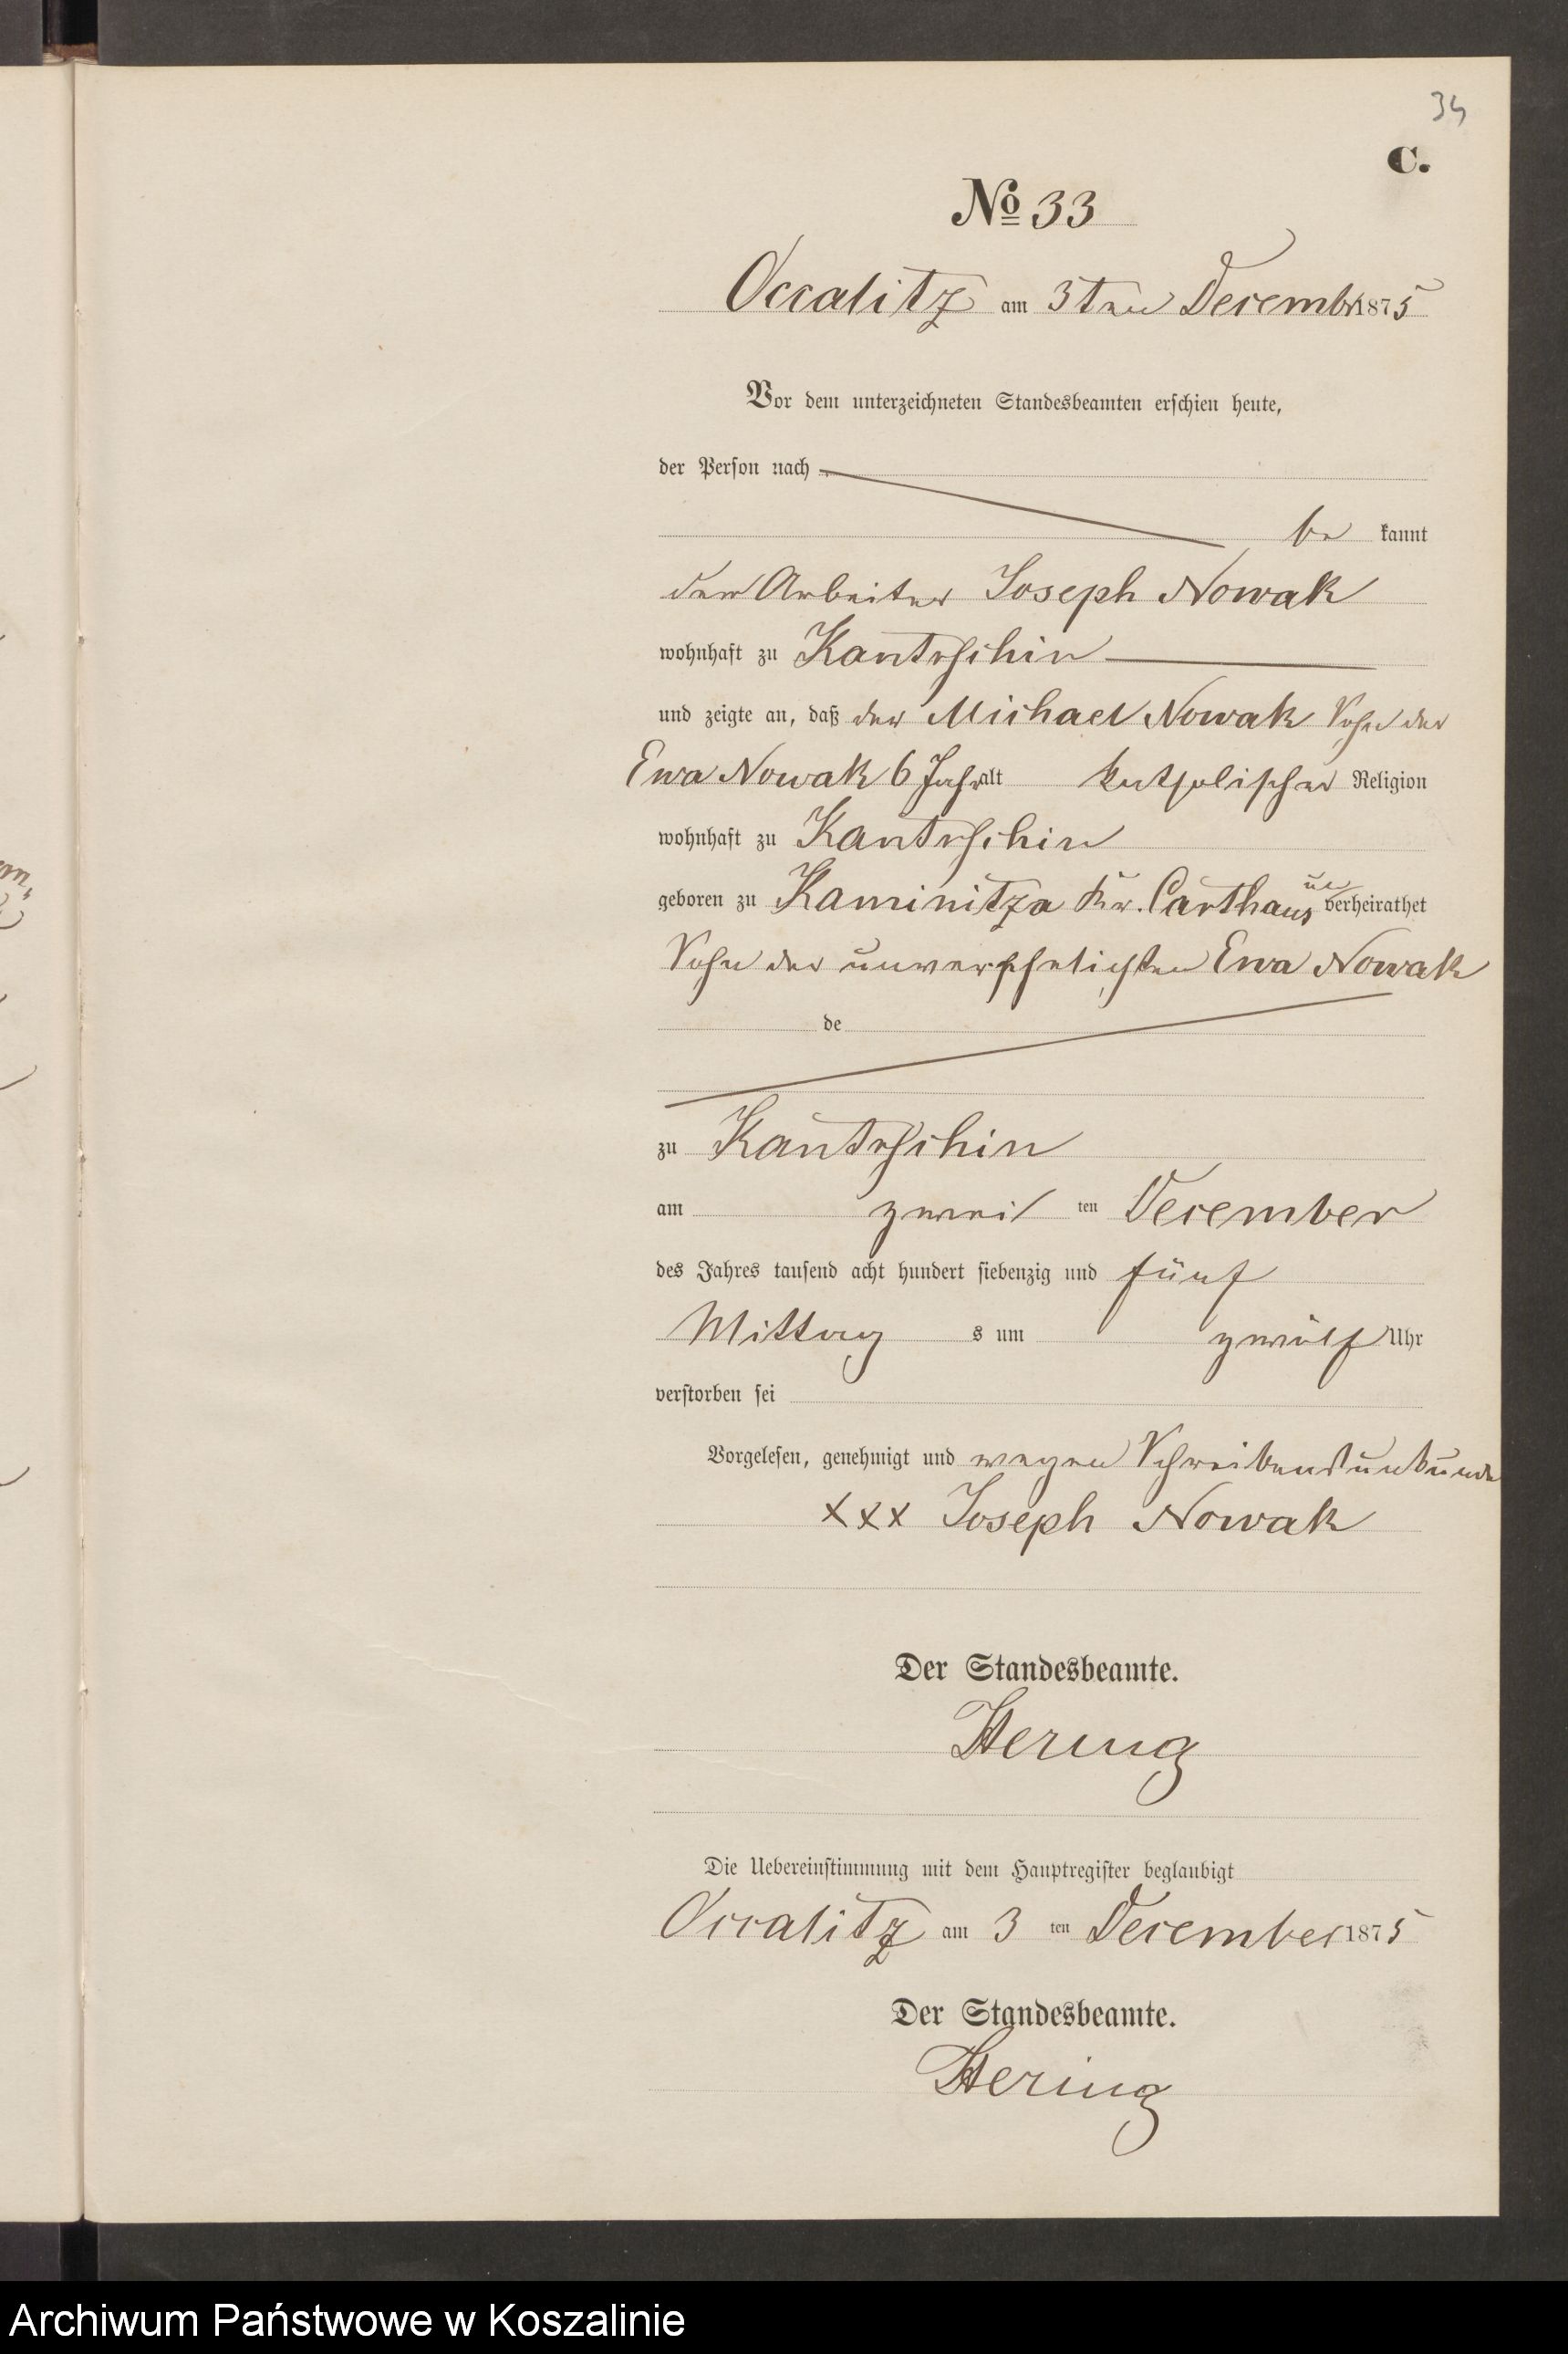 34
C.
№ 33
Occalitz am 3ten Decembr 1875
Vor dem unterzeichneten Standesbeamten erschien heute,
der Person nach
be kannt
der Arbeiter Joseph Nowak
wohnhaft zu Kantrschin
und zeigte an, daß der Michael Nowak Sohn der
Ewa Nowak 6 Jahr alt katholischer Religion
wohnhaft zu Kantrschin
geboren zu Kaminitza Kr. Carthaus un verheirathet
Sohn der unverehelichten Ewa Nowak
de
zu Kantrschin
am zwei ten December
des Jahres tausend acht hundert siebenzig und fünf
Mittag s um zwölf Uhr
verstorben sei
Vorgelesen, genehmigt und wegen Schreibensunkunde
xxx Joseph Nowak
Der Standesbeamte.
Hering
Die Uebereinstimmung mit dem Hauptregister beglaubigt
Occalitz am 3 ten December 1875
Der Standesbeamte.
Hering
Archiwum Państwowe w Koszalinie